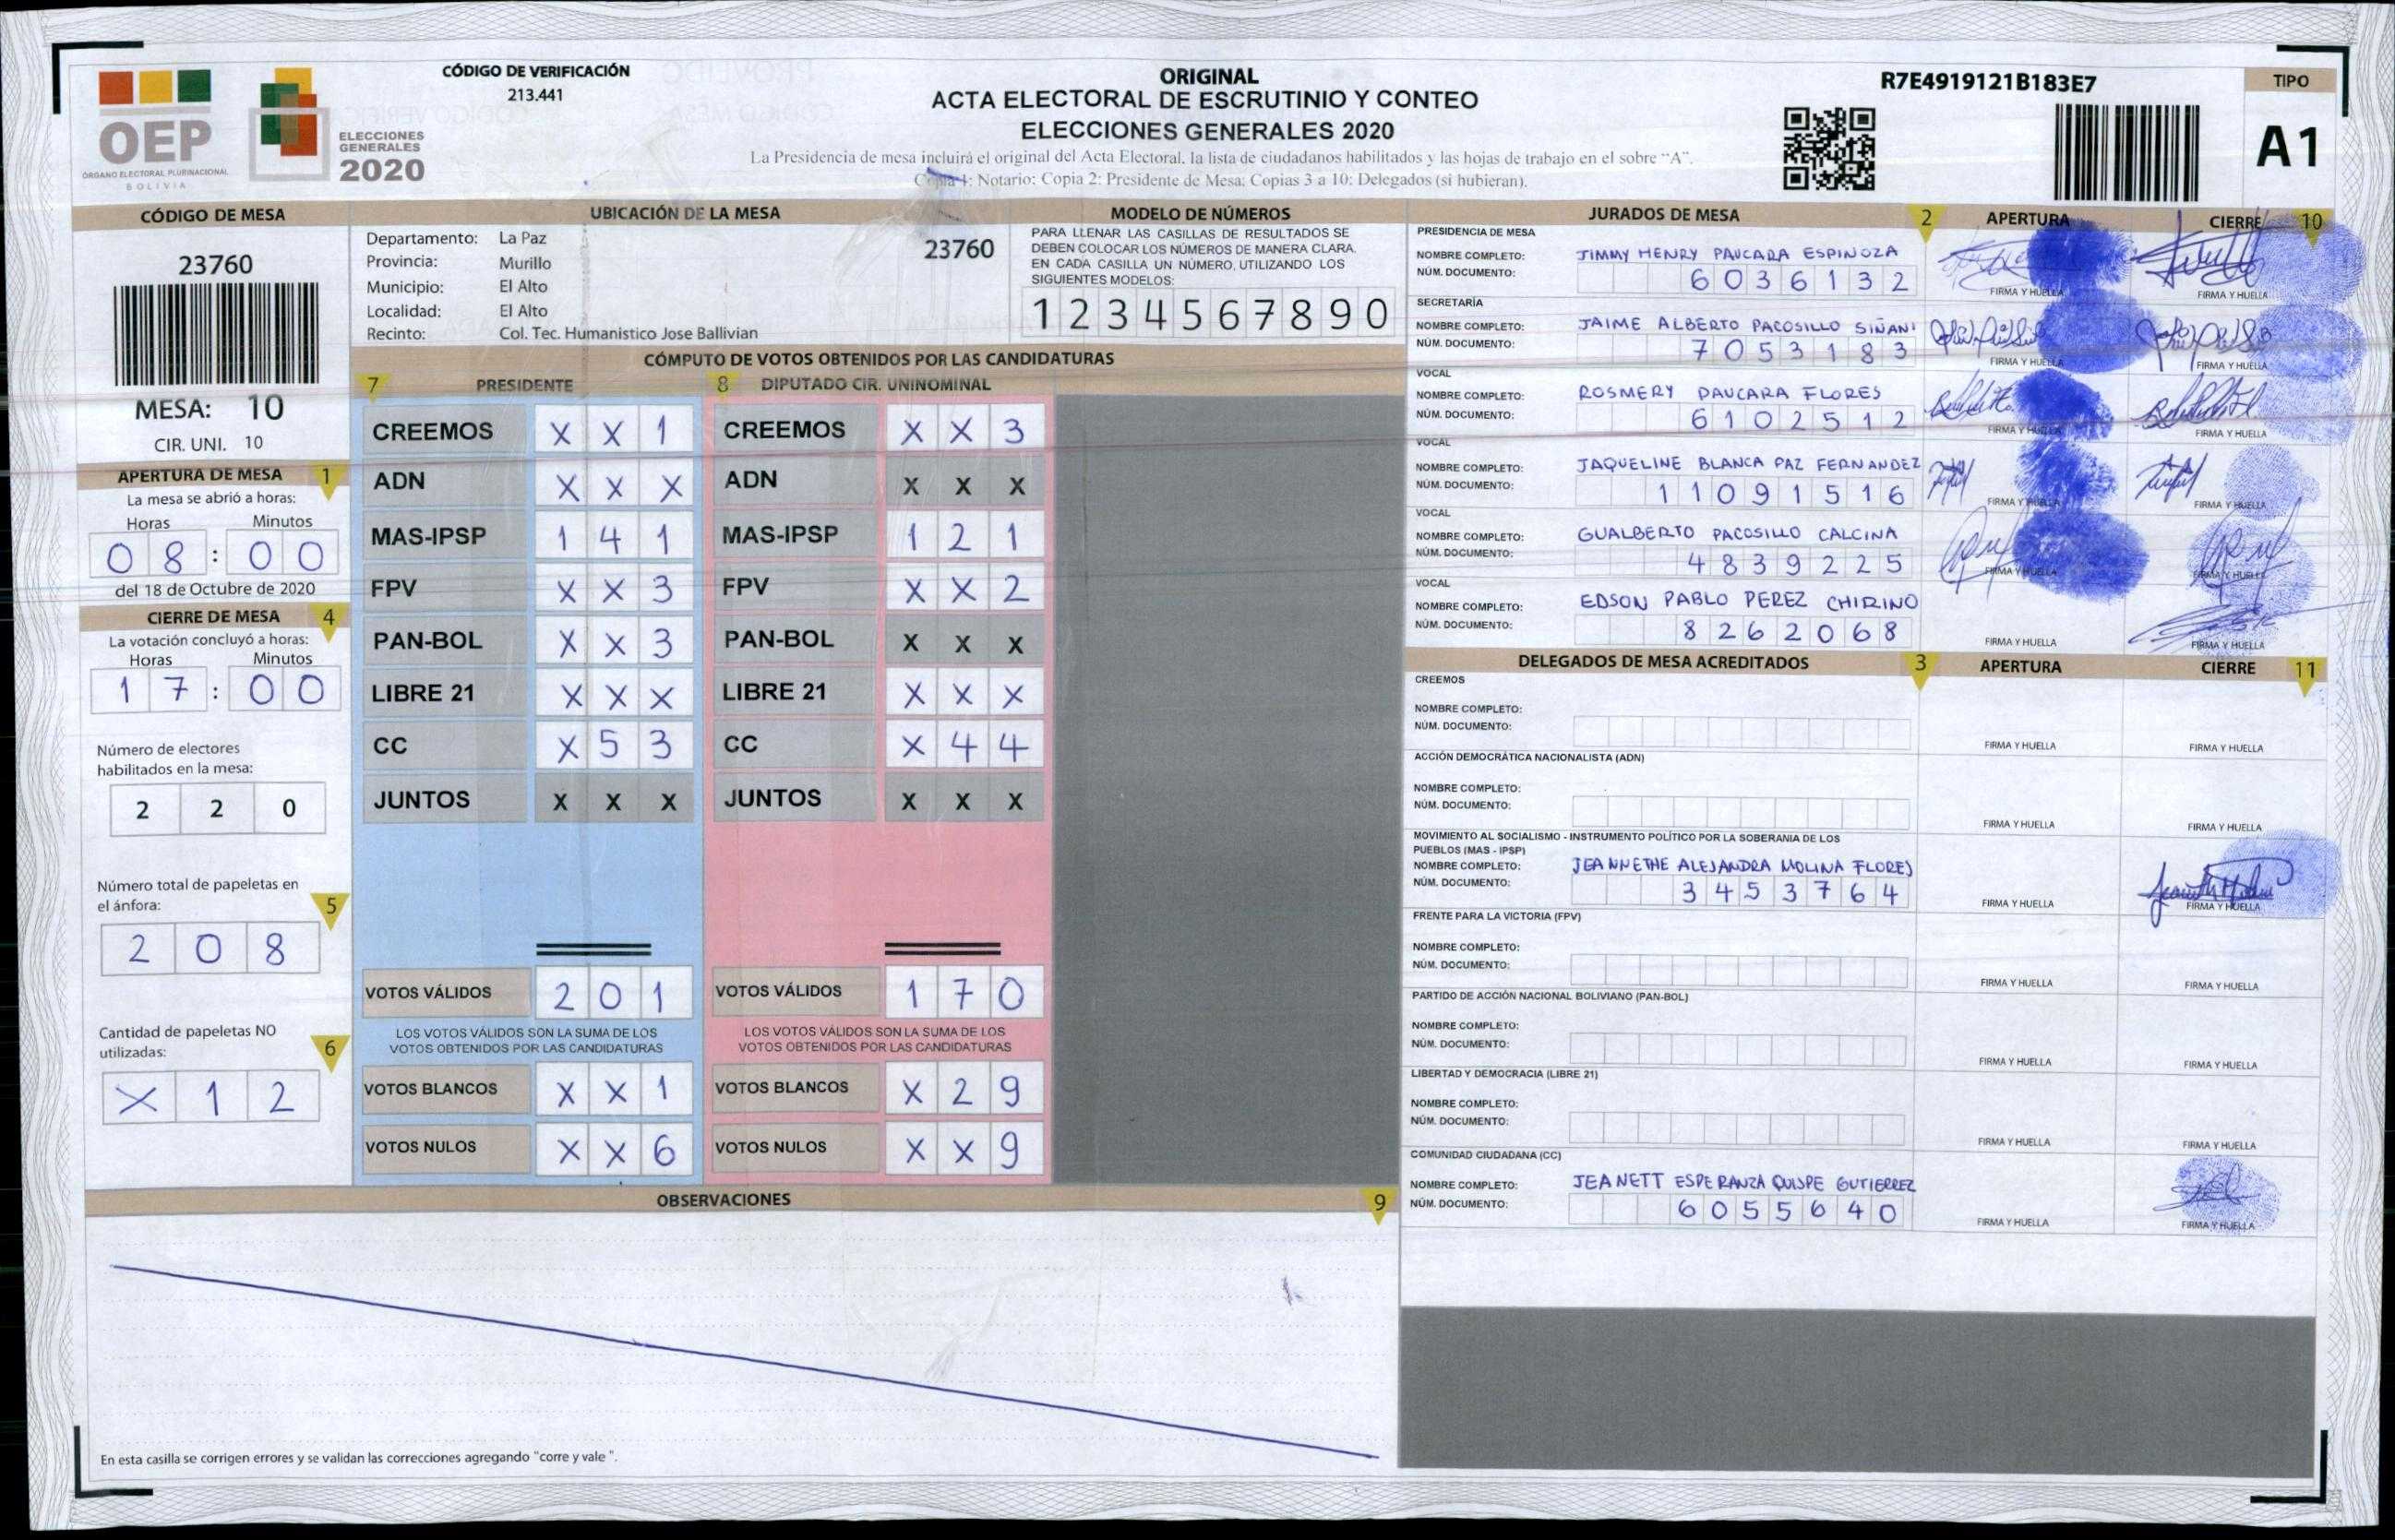 CÓDIGO DE VERIFICACIÓN
213.441
OEP
ÓRGANO ELECTORAL PLURINACIONAL
BOLIVIA
ELECCIONES
GENERALES
2020
ORIGINAL
ACTA ELECTORAL DE ESCRUTINIO Y CONTEO
ELECCIONES GENERALES 2020
La Presidencia de mesa incluirá el original del Acta Electoral, la lista de ciudadanos habilitados y las hojas de trabajo en el sobre "A".
Copia 1: Notario; Copia 2: Presidente de Mesa; Copias 3 a 10: Delegados (si hubieran).
R7E4919121B183E7
TIPO
A1
CÓDIGO DE MESA
23760
MESA: 10
CIR. UNI. 10
APERTURA DE MESA 1
La mesa se abrió a horas:
Horas Minutos
0 8 : 0 0
del 18 de Octubre de 2020
CIERRE DE MESA 4
La votación concluyó a horas:
Horas Minutos
1 7 : 0 0
Número de electores
habilitados en la mesa:
2 2 0
Número total de papeletas en
el ánfora: 5
2 0 8
Cantidad de papeletas NO
utilizadas: 6
X 1 2
UBICACIÓN DE LA MESA
Departamento: La Paz
Provincia: Murillo
Municipio: El Alto
Localidad: El Alto
Recinto: Col. Tec. Humanistico Jose Ballivian
23760
MODELO DE NÚMEROS
PARA LLENAR LAS CASILLAS DE RESULTADOS SE
DEBEN COLOCAR LOS NÚMEROS DE MANERA CLARA.
EN CADA CASILLA UN NÚMERO, UTILIZANDO LOS
SIGUIENTES MODELOS:
1 2 3 4 5 6 7 8 9 0
CÓMPUTO DE VOTOS OBTENIDOS POR LAS CANDIDATURAS
7 PRESIDENTE 8 DIPUTADO CIR. UNINOMINAL
CREEMOS X X 1 CREEMOS X X 3
ADN X X X ADN X X X
MAS-IPSP 1 4 1 MAS-IPSP 1 2 1
FPV X X 3 FPV X X 2
PAN-BOL X X 3 PAN-BOL X X X
LIBRE 21 X X X LIBRE 21 X X X
CC X 5 3 CC X 4 4
JUNTOS X X X JUNTOS X X X
VOTOS VÁLIDOS 2 0 1 VOTOS VÁLIDOS 1 7 0
LOS VOTOS VÁLIDOS SON LA SUMA DE LOS LOS VOTOS VÁLIDOS SON LA SUMA DE LOS
VOTOS OBTENIDOS POR LAS CANDIDATURAS VOTOS OBTENIDOS POR LAS CANDIDATURAS
VOTOS BLANCOS X X 1 VOTOS BLANCOS X 2 9
VOTOS NULOS X X 6 VOTOS NULOS X X 9
OBSERVACIONES 9
En esta casilla se corrigen errores y se validan las correcciones agregando "corre y vale ".
JURADOS DE MESA 2 APERTURA CIERRE 10
PRESIDENCIA DE MESA
NOMBRE COMPLETO: JIMMY HENRY PAUCARA ESPINOZA
NÚM. DOCUMENTO: 6 0 3 6 1 3 2
FIRMA Y HUELLA FIRMA Y HUELLA
SECRETARÍA
NOMBRE COMPLETO: JAIME ALBERTO PACOSILLO SIÑANI
NÚM. DOCUMENTO: 7 0 5 3 1 8 3
FIRMA Y HUELLA FIRMA Y HUELLA
VOCAL
NOMBRE COMPLETO: ROSMERY PAUCARA FLORES
NÚM. DOCUMENTO: 6 1 0 2 5 1 2
FIRMA Y HUELLA FIRMA Y HUELLA
VOCAL
NOMBRE COMPLETO: JAQUELINE BLANCA PAZ FERNANDEZ
NÚM. DOCUMENTO: 1 1 0 9 1 5 1 6
FIRMA Y HUELLA FIRMA Y HUELLA
VOCAL
NOMBRE COMPLETO: GUALBERTO PACOSILLO CALCINA
NÚM. DOCUMENTO: 4 8 3 9 2 2 5
FIRMA Y HUELLA FIRMA Y HUELLA
VOCAL
NOMBRE COMPLETO: EDSON PABLO PEREZ CHIRINO
NÚM. DOCUMENTO: 8 2 6 2 0 6 8
FIRMA Y HUELLA FIRMA Y HUELLA
DELEGADOS DE MESA ACREDITADOS 3 APERTURA CIERRE 11
CREEMOS
NOMBRE COMPLETO:
NÚM. DOCUMENTO:
FIRMA Y HUELLA FIRMA Y HUELLA
ACCIÓN DEMOCRÁTICA NACIONALISTA (ADN)
NOMBRE COMPLETO:
NÚM. DOCUMENTO:
FIRMA Y HUELLA FIRMA Y HUELLA
MOVIMIENTO AL SOCIALISMO - INSTRUMENTO POLÍTICO POR LA SOBERANIA DE LOS
PUEBLOS (MAS - IPSP)
NOMBRE COMPLETO: JEANNETHE ALEJANDRA MOLINA FLORES
NÚM. DOCUMENTO: 3 4 5 3 7 6 4
FIRMA Y HUELLA FIRMA Y HUELLA
FRENTE PARA LA VICTORIA (FPV)
NOMBRE COMPLETO:
NÚM. DOCUMENTO:
FIRMA Y HUELLA FIRMA Y HUELLA
PARTIDO DE ACCIÓN NACIONAL BOLIVIANO (PAN-BOL)
NOMBRE COMPLETO:
NÚM. DOCUMENTO:
FIRMA Y HUELLA FIRMA Y HUELLA
LIBERTAD Y DEMOCRACIA (LIBRE 21)
NOMBRE COMPLETO:
NÚM. DOCUMENTO:
FIRMA Y HUELLA FIRMA Y HUELLA
COMUNIDAD CIUDADANA (CC)
NOMBRE COMPLETO: JEANETT ESPERANZA QUISPE GUTIERREZ
NÚM. DOCUMENTO: 6 0 5 5 6 4 0
FIRMA Y HUELLA FIRMA Y HUELLA